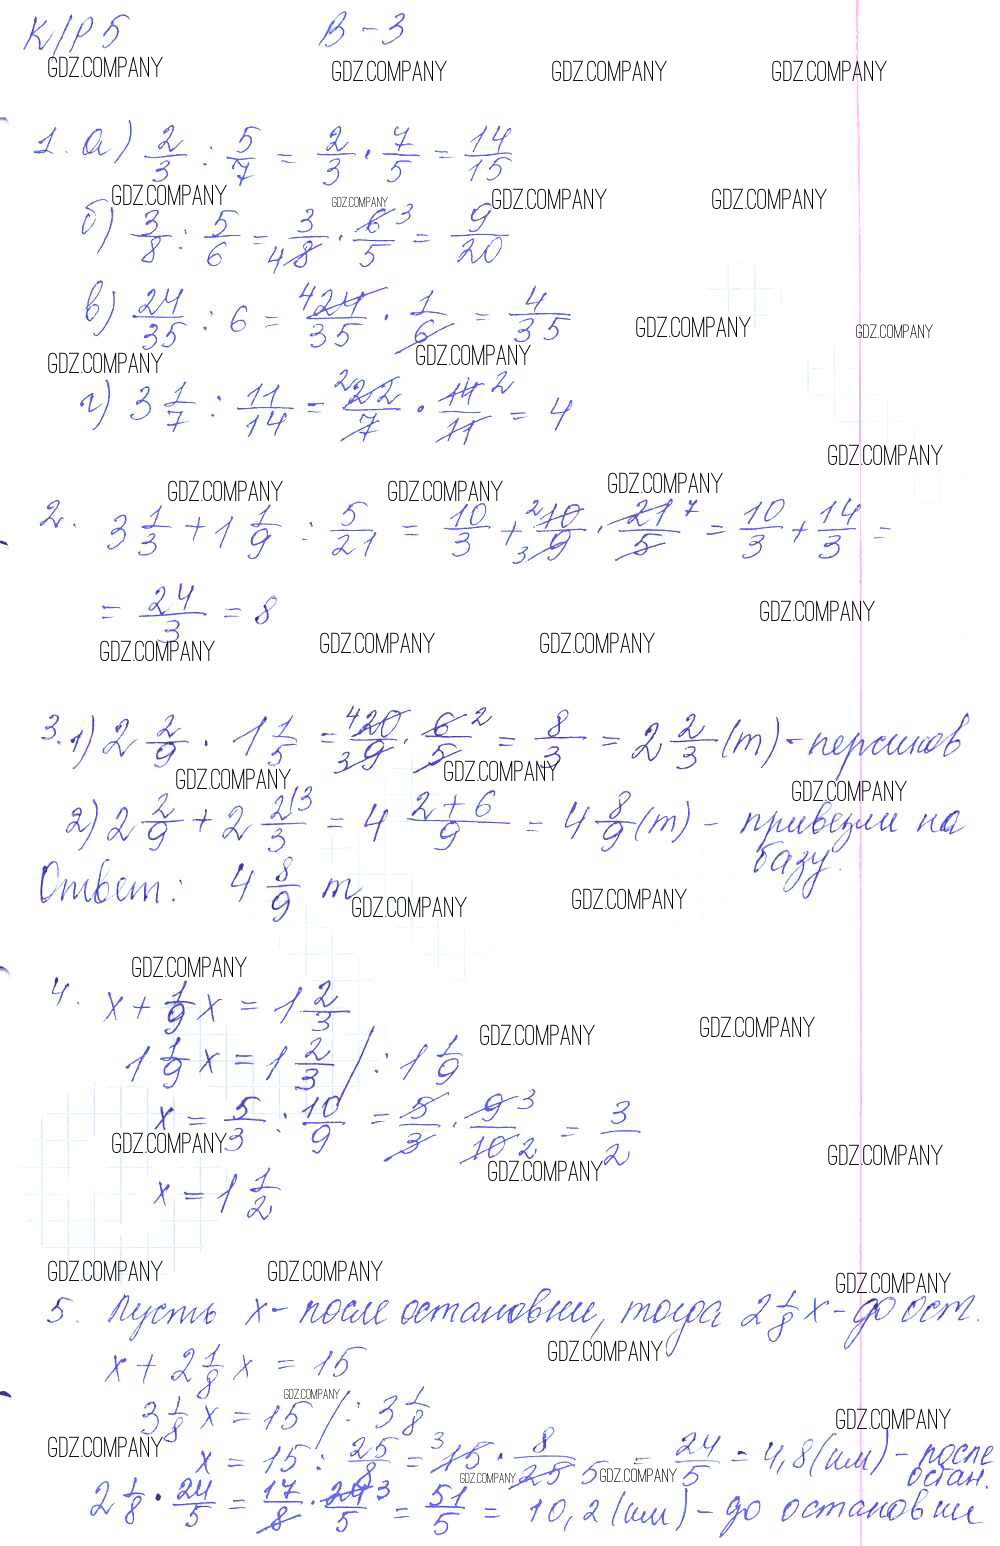 К/Р 5 В-3
GDZ.COMPANY GDZ.COMPANY GDZ.COMPANY GDZ.COMPANY
1. а) 2/3 : 5/7 = 2/3 · 7/5 = 14/15
GDZ.COMPANY GDZ.COMPANY GDZ.COMPANY GDZ.COMPANY
б) 3/8 : 5/6 = 3/8 4 · 6/5 3 = 9/20
в) 24/35 : 6 = 4 24/35 · 1/6 = 4/35
GDZ.COMPANY GDZ.COMPANY
GDZ.COMPANY GDZ.COMPANY
г) 3 1/7 : 11/14 = 2 22/7 · 14/11 2 = 4
GDZ.COMPANY
GDZ.COMPANY GDZ.COMPANY GDZ.COMPANY
2. 3 1/3 + 1 1/9 : 5/21 = 10/3 + 2 10/9 3 · 21/5 7 = 10/3 + 14/3 =
= 24/3 = 8
GDZ.COMPANY
GDZ.COMPANY GDZ.COMPANY GDZ.COMPANY
3. 1) 2 2/9 · 1 1/5 = 4 20/9 3 · 6/5 2 = 8/3 = 2 2/3 (т) - персиков
GDZ.COMPANY GDZ.COMPANY GDZ.COMPANY
2) 2 2/9 + 2 2/3 3 = 4 2+6/9 = 4 8/9 (т) - привезли на
базу.
Ответ: 4 8/9 т
GDZ.COMPANY GDZ.COMPANY
GDZ.COMPANY
4. x + 1/9 x = 1 2/3
GDZ.COMPANY GDZ.COMPANY
1 1/9 x = 1 2/3 / : 1 1/9
x = 5/3 : 10/9 = 5/3 · 9/10 3 2 = 3/2
GDZ.COMPANY GDZ.COMPANY GDZ.COMPANY
x = 1 1/2
GDZ.COMPANY GDZ.COMPANY GDZ.COMPANY
5. Пусть x - после остановки, тогда 2 1/8 x - до ост.
GDZ.COMPANY
x + 2 1/8 x = 15
GDZ.COMPANY
3 1/8 x = 15 / : 3 1/8
GDZ.COMPANY
GDZ.COMPANY
x = 15 : 25/8 = 3 15 · 8/25 5 = 24/5 = 4,8 (км) - после
остан.
GDZ.COMPANY GDZ.COMPANY
2 1/8 · 24/5 = 17/8 · 24/5 3 = 51/5 = 10,2 (км) - до остановки